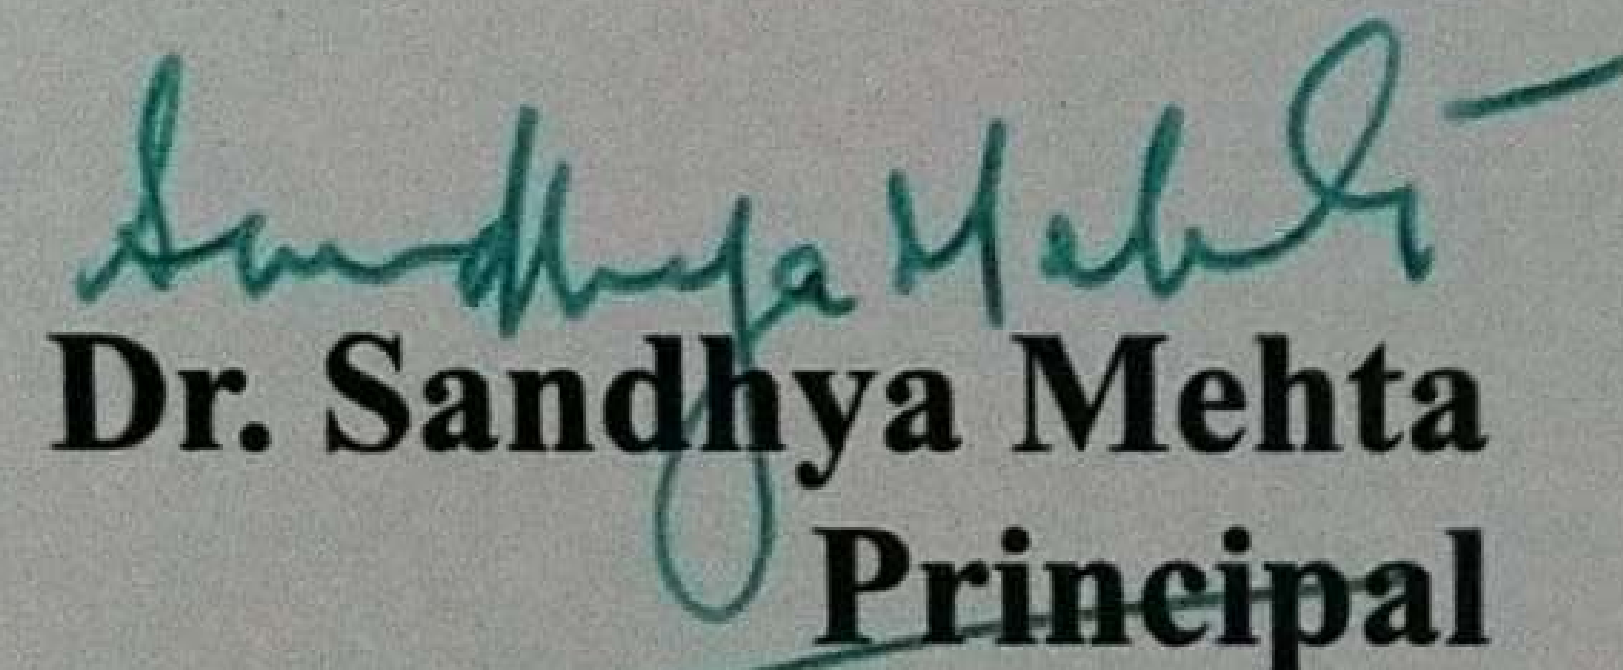 Sandhya Mehta
Dr. Sandhya Mehta
Principal